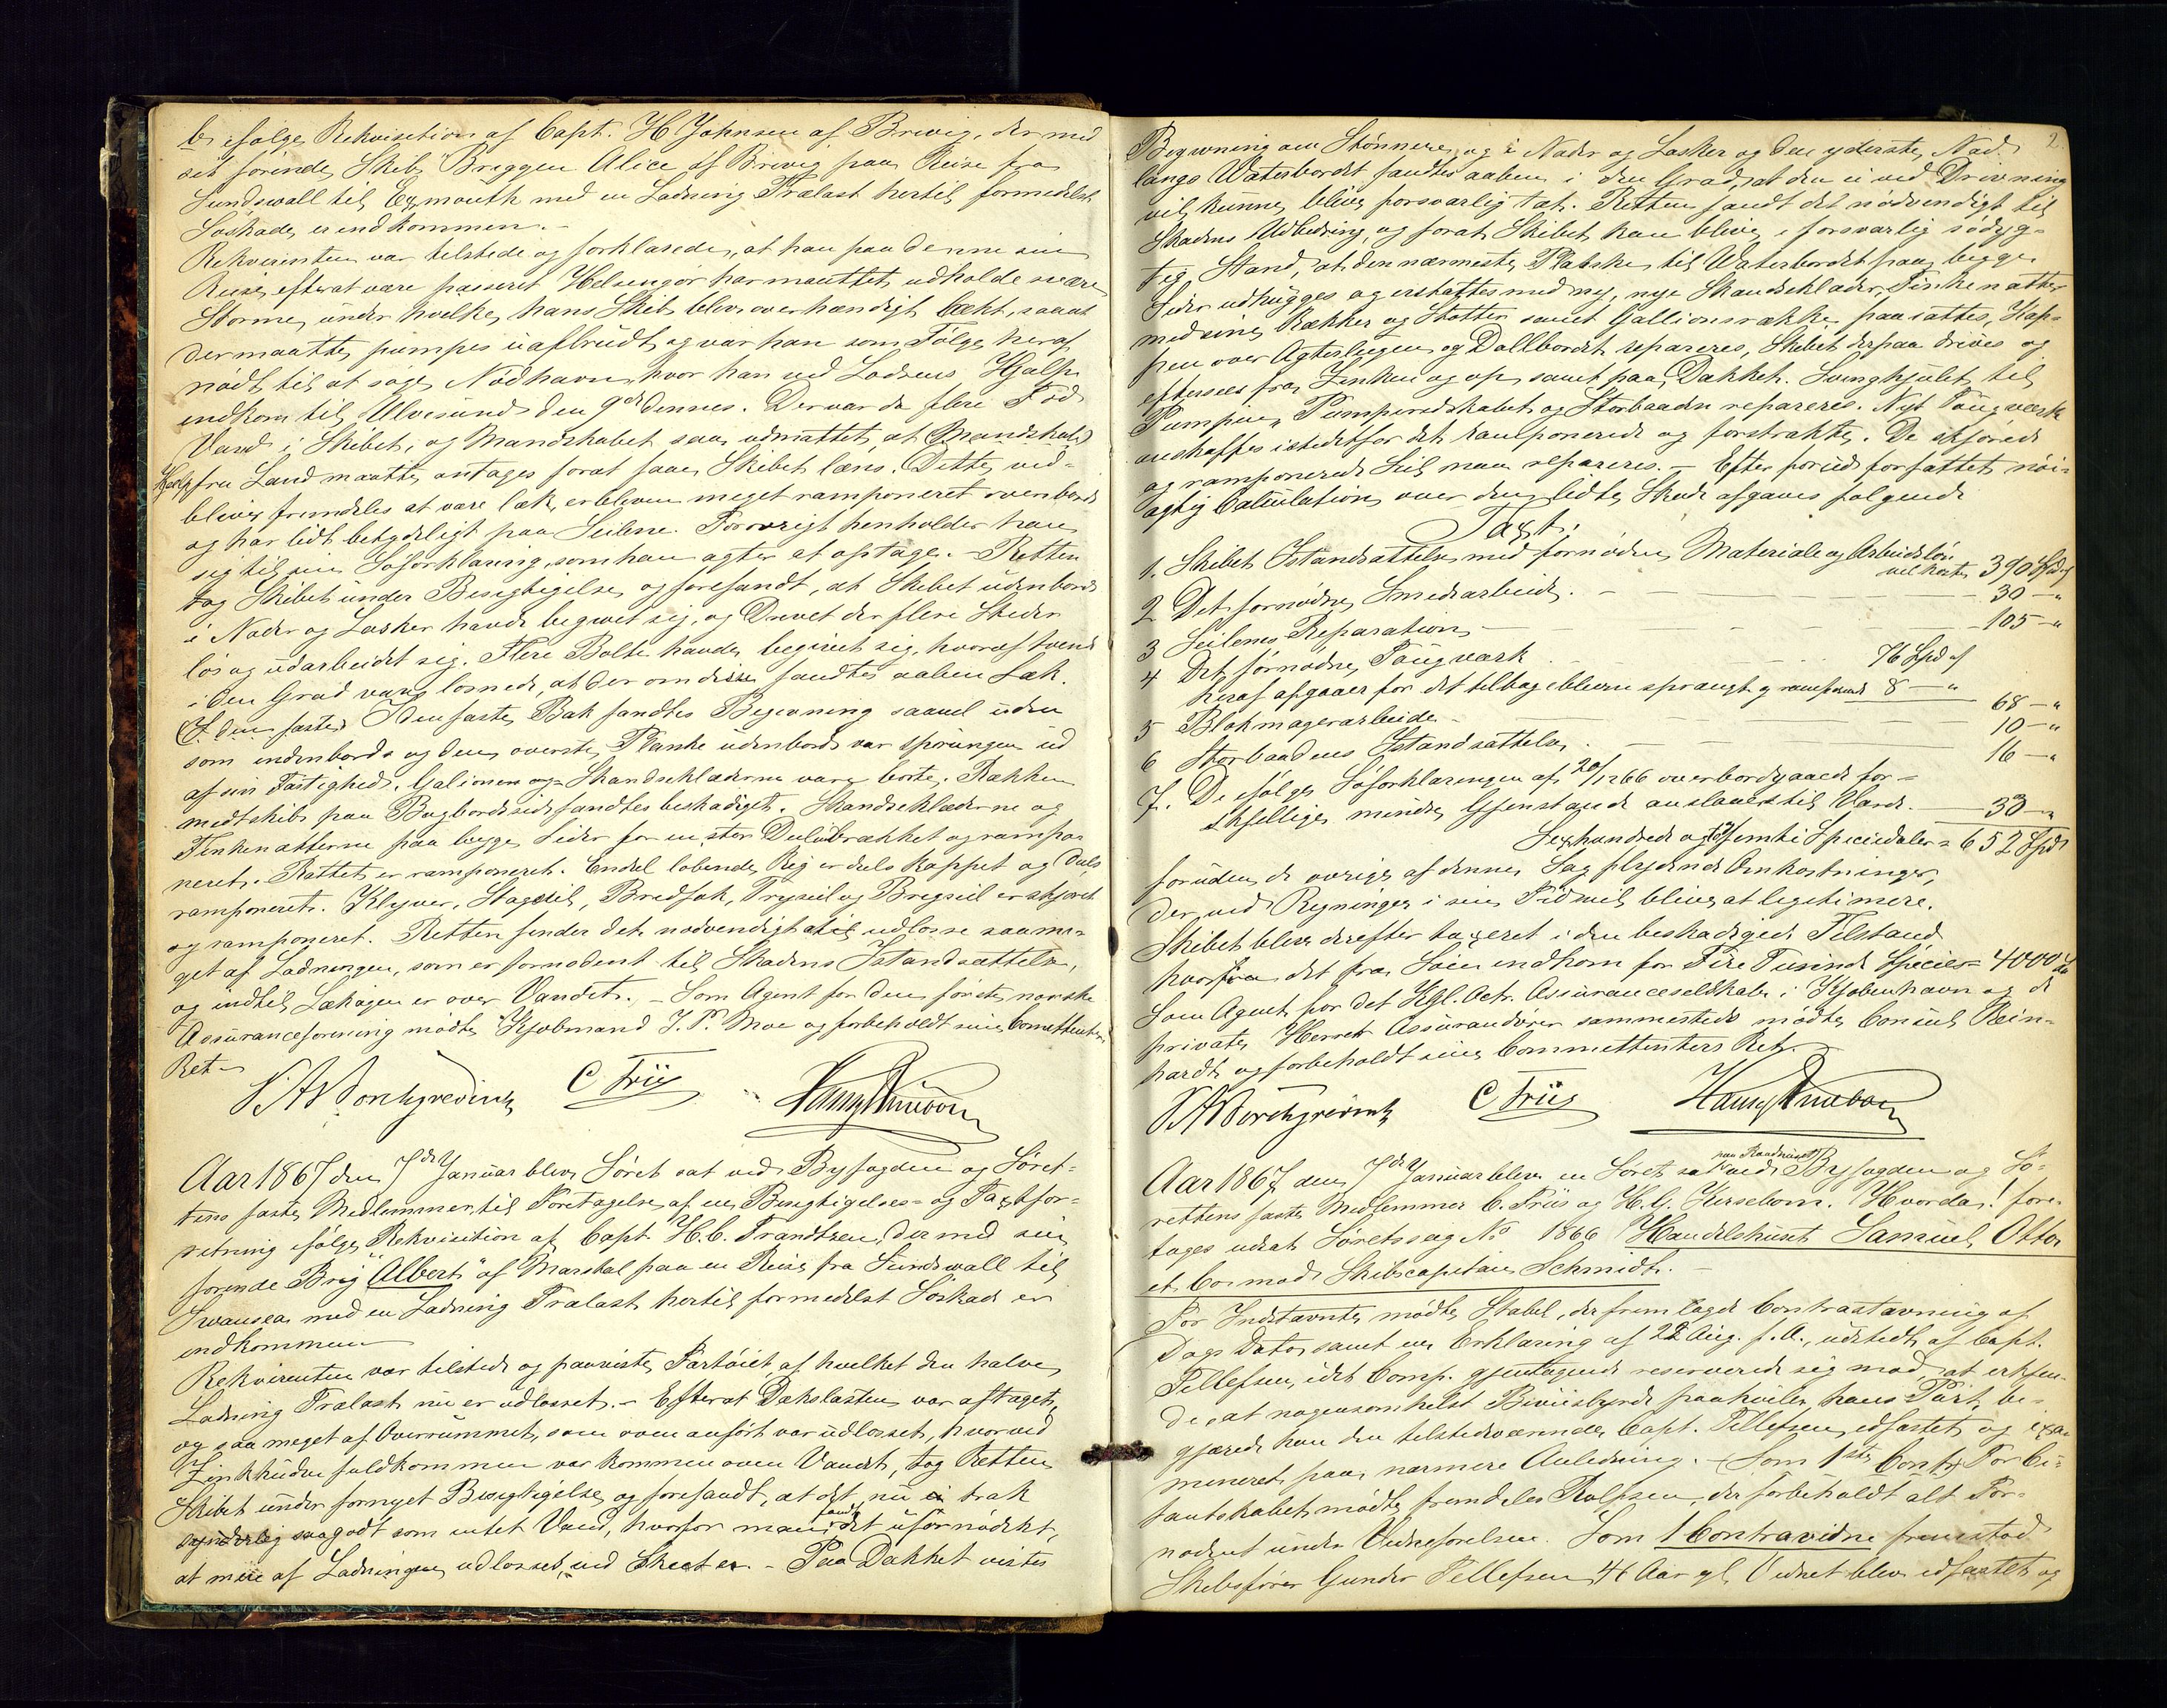 ifølge Rekvisition af Capt. H Johnsen af Brevig, der med
sit førende Skib, Briggen Alice af Brevig paa Reise fra
Sundswall til Exmouth med en Ladning Trælast hertil formedelst
Søskade er indkommen.-
Rekvirenten var tilstede og forklarede, at han paa denne sin
Reise, efterat være passeret Helsingør har maattet udholde svære
Storme, under hvilke, hans Skib blev overhændigt lækt, saaat
der maatte pumpes uafbrudt, og var han som Følge heraf
nødt til at søge Nødhavn, hvor han ved Lodsens Hjælp
indkom til Ulvesund den 9de dennes. Der var da flere Fod
Vand i Skibet, og Mandskabet saa udmattet, at Mandskab
Hjælp fra Land maatte antages forat faae Skibet læns. Dette, ved-
bliver fremdeles at være læk, er bleven meget ramponeret ovenbords
og har lidt betydeligt paa Seilene. Forøvrigt henholder han
sig til sin Søforklaring, som han agter at optage.- Retten
tog Skibet under Besigtigelse, og forefandt, at Skibet udenbords
i Nader og Lasker havde begivet sig, og Drevet der flere Steder
løs og udarbeidet sig. Flere Bolte havde begivet sig, hvoraf tvende
i den Grad vare løsnede, at der om disse fandtes aaben Læk.
(I den faste) I den faste Bak fandtes Begivning saavel uden
som indenbords og den øverste Planke udenbords var sprungen ud
af sin Fastighed. Galionen og Skandseklæderne vare borte. Rækken
midtskibs paa Bagbords side fandtes beskadiget. Skandseklæderne og
Finkenætterne paa begge Sider for en stor Deel brækket og rampo-
neret. Rattet er ramponeret. Endel løbende Rig er deels kappet og deels
ramponeret. Klyver, Stagseil, Bredfok, Tryseil og Brigseil er skjøret
og ramponeret. Retten finder det nødvendigt at udlosse saame-
get af Ladningen, som er fornødent til Skadens Istandsættelse,
og indtil Lækagen er over Vandet. - Som Agent for den første norske
Assuranceforening mødte Kjøbmand J. P. Moe og forbeholdt sine Comittenters
Ret -
C Friis
Aar 1867 den 7de Januar blev Søret sat ved Byfogden og Søret-
tens faste Medlemmer, til Foretagelse af en Besigtigelses- og Taxtfor-
retning ifølge Rekvisition af Capt. H. C. Frandtzen, der med sin
førende Brig "Albert" af Marstal paa en Reise fra Sundswall til
Swansea med en Ladning Trælast hertil formedelst Søskade er
indkommen
Rekvirenten var tilstede og paaviste Fartøiet, af hvilket den halve
Ladning Trælast nu er udlosset. - Efterat Dækslasten var aftaget,
og saa meget af Overrummet, som oven anført var udlosset, hvorved
Zinkhuden fuldkommen var kommen oven Vandet, tog Retten
Skibet under fornyet Besigtigelse og forefandt, at det nu ei træk
synderlig saagodt som intet Vand, hvorfor man fandt det ufornødent,
at mere af Ladningen udlosses, end skeet er. - Paa Dækket vistes
2.
Begivning om Stønnere, og i Nader og Lasker og den yderste Nad
langs Waterbordet fandtes aaben i den Grad, at den ei ved Drivning
vil kunne blive forsvarlig tæt. Retten fandt det nødvendigt til
Skadens Udbedring, og forat Skibet kan blive i forsvarlig sødyg-
tig Stand, at den nærmeste Planke til Waterbordet paa begge
Sider udhugges og erstattes med ny, nye Skandseklæder, Finkenætter
med sine Rækker og Støtter samt Gallionsrække paasættes, Kap-
pen over Agterlugen og Dollbordet repareres, Skibet derpaa drives og
eftersees fra Zinken og op, samt paa Dækket. Svinghjulet til
Pumpen, Pumperedskabet og Storbaaden repareres. Nyt Tougværk
anskaffes istedetfor det ramponerede og forstrakte. De skjørede
og ramponerede Seil maa repareres. - Efter forud forfattet nøi-
agtig Calculation over den lidte Skade afgaves følgende
Taxt:
1. Skibets Istandsættelse med fornødne Materiale og Arbeidsløn
vil koste 390 Spd.
2 Det fornødne Smedearbeide. - - - - 30 - "
3 Seilenes Reparation - - - - 105 - "
4 Det fornødne Tougværk - - - 76 Spd
heraf afgaaer for det tilbageblevne sprængt og ramponeret 8 - " 68 - "
5 Blokmagerarbeide - - - 10 - "
6 Storbaadens Istandsættelse. - - - 16 - "
7. De ifølge Søforklaringen af 20/12 66 overbordgaaede for-
skjellige mindre Gjenstande anslaaes til Værd. - 33 - "
Sexhundrede og to femti Speciedaler = 652 Spd
foruden de øvrige af denne Sag flydende Omkostninger,
der ved Regninger i sin Tid vil blive at legitimere.
Skibet blev derefter taxeret i den beskadigede Tilstand
hvori det fra Søen indkom for Fire Tusinde Species = 4000 Spd
Som Agent for det Kgl. Octr. Assuranceselskab i Kjøbenhavn og de
private Herrer Assurandører sammesteds mødte Consul Rein-
hardt og forbeholdt sine Committenters Ret. -
C Friis
Aar 1867 den 7de Januar blev en Søret sat paa Raadhuset ved Byfogden og Sø-
rettens faste Medlemmer C. Friis og H. G. Kirsebom. Hvorda! fore-
toges udsat Søretssag No 1866 Handelshuset Samuel Otto
et Co mod Skibscapitain Schmidt. -
For Indstævnte mødte Stabel, der fremlagde Contrastævning af
Dags Dato samt en Erklæring af 22 Aug. f. A., udstedt af Capt.
Tellefsen, idet Comp. gjentagende reserverede sig mod, at erkjen-
de, at nogensomhelst Beviisbyrde paahviler hans Part, be-
gjærede han den tilstedeværende Capt. Tellefsen edfæstet og exa-
mineret paa nærmere Anledning. - Som 1ste Contra For Ci-
tantskabet mødte fremdeles Rolfsen, der forbeholdt alt For-
nødent under Vidneførelsen. Som 1 Contravidne fremstod
Skibsfører Gunder Tellefsen, 41 Aar gl. Vidnet blev edfæstet og